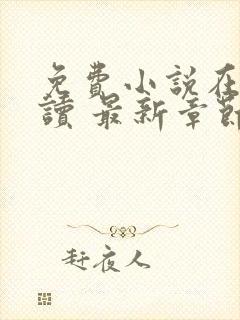 免費小說在
讀 最新章節
赶夜人